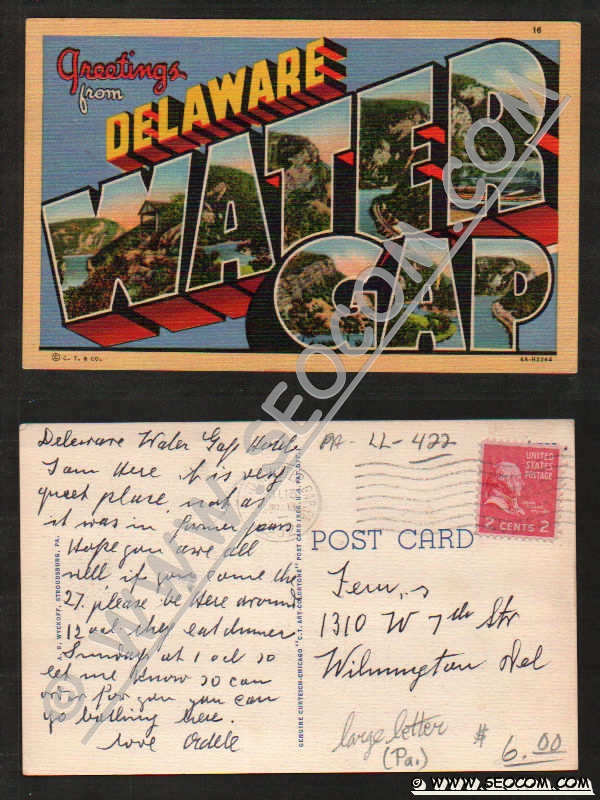 16
Greetings
from
DELAWARE
WATER
GAP
© C. T. & CO.
4A-H2244
© WWW.SEOCOM.COM
Delaware Water Gap Hotel
PA - LL - 422
I am Here it is very
quiet place not as
it was in former years
Hope you are all
well if you come the
27. please be Here around
12 ocl they eat dinner
Sunday at 1 ocl so
let me know so can
order for you you can
go bathing here.
Love Adele
A. B. WYCKOFF, STROUDSBURG, PA.
GENUINE CURTEICH-CHICAGO "C.T. ART-COLORTONE" POST CARD
UNITED
STATES
POSTAGE
2 CENTS 2
POST CARD
1310 W 7th Str
Wilmington Del
large letter
(Pa.)
$ 6.00
© WWW.SEOCOM.COM